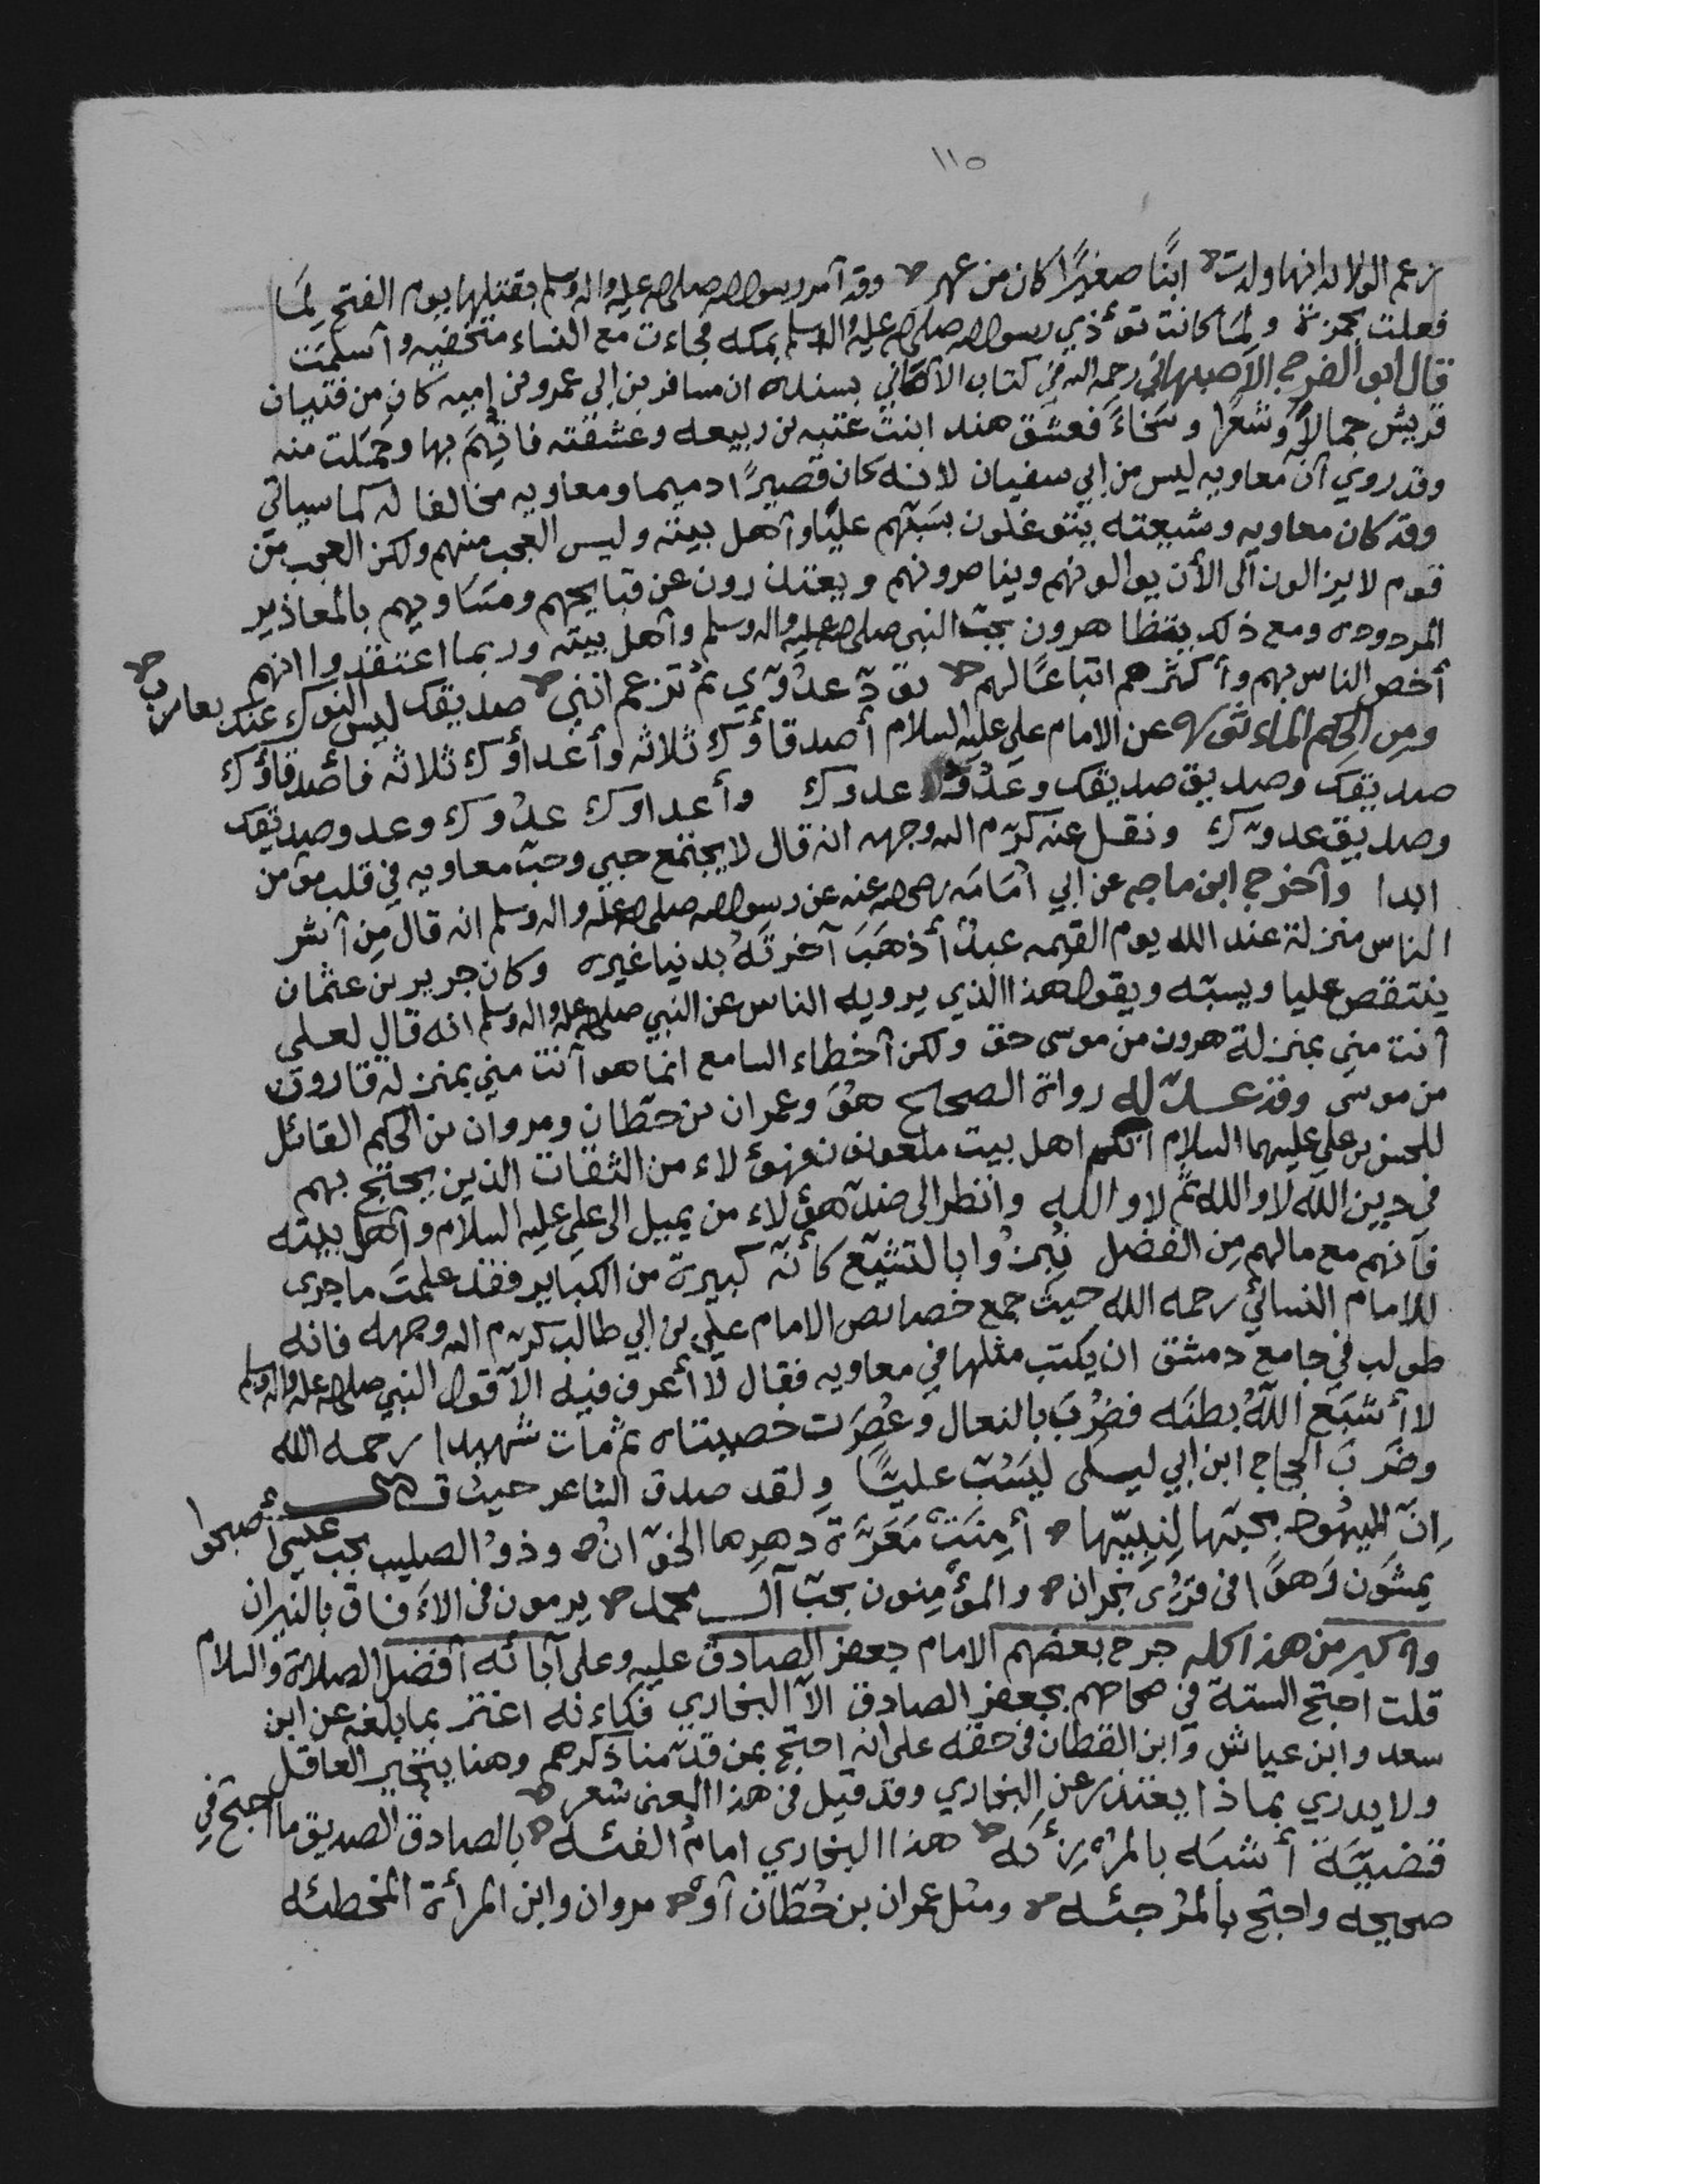 ١١٥
زعم الولائد انها ولدت ابنًا صغيرًا كان من عهر وقد أمر رسول الله صلى الله عليه واله وسلم بقتلها يوم الفتح لِمَا
فعلت بحمزة ولمَا كانت تؤذي رسول الله صلى الله عليه واله وسلم بمكه فجاءت مع النساء متخفيه وأسلمت
قال ابو الفرج الأصبهاني رحمه الله في كتاب الأغاني بسنده ان مسافر بن ابي عمرو بن اميه كان من فتيان
قريش جمالًا وشعرًا وسخاءً فعشق هند ابنت عتبه بن ربيعه وعشقته فاتهم بها وحملت منه
وقد روي أن معاويه ليس من ابي سفيان لانه كان قصيرًا دميما ومعاويه مخالفا له كما سياتي
وقد كان معاويه وشيعته يتوغلون بسبّهم عليًا وأهل بيته وليس العجب منهم ولكن العجب من
قوم لا يزالون الى الأن يوالونهم ويناصرونهم ويعتذرون عن قبايحهم ومساويهم بالمعاذير
المردوده ومع ذلك يتظاهرون بحب النبي صلى الله عليه واله وسلم وأهل بيته وربما اعتقدوا انهم
أخص الناس بهم وأكثرهم اتباعًا لهم تودّ عدوّي ثم تزعم انني صديقك ليس النوك عنك بعازب
ومن الحِكم الماءثوره عن الامام علي عليه السلام أصدقاؤك ثلاثه وأعداؤك ثلاثه فأصدقاؤك
صديقك وصديق صديقك وعدوّ عدوك وأعداوك عدوك وعدو صديقك
وصديق عدوّك ونقل عنه كرّم الله وجهه انه قال لا يجتمع حبي وحبّ معاويه في قلب مؤمن
ابدا وأخرج ابن ماجه عن ابي أمامَه رضي الله عنه عن رسول الله صلى الله عليه واله وسلم انه قال مِن أشر
الناس منزلة عند الله يوم القيمه عبدٌ أذهَبَ آخرتَهُ بدنيا غيره وكان جرير بن عثمان
ينتقص عليا ويسبّه ويقول هذا الذي يرويه الناس عن النبي صلى الله عليه واله وسلم انه قال لعلي
أنت مني بمنزلة هرون من موسى حق ولكن أخطاء السامع انما هو أنت مني بمنزله قارون
من موسى وقد عدّ له رواة الصحاح هوَ وعمران بن حطّان ومروان بن الحكم القائل
للحسن بن علي عليهما السلام انكم اهل بيت ملعونون فهؤلاء من الثقات الذين يحتج بهم
في دين الله لا والله ثم لا والله وانظر الى ضدّ هؤلاء من يميل الى علي عليه السلام وأهل بيته
فانهم مع مالهم مِن الفضل نُبِزُوا بالتشيّع كأنّه كبيرة من الكباير فقد علمتَ ما جرى
للامام النسائي رحمه الله حيث جمع خصائص الامام علي بن ابي طالب كرّم الله وجهه فانه
طولب في جامع دمشق ان يكتب مثلها في معاويه فقال لا أعرف فيه الا قول النبي صلى الله عليه واله وسلم
لا أشبَعَ اللهُ بطنَه فضُرِبَ بالنعال وعُصِرَت خصيتاه ثم مات شهيدا رحمه الله
وضرَبَ الحجاج ابن ابي ليلى ليَسُبّ عليًّا ولقد صدق الشاعر حيث قال
اِنّ اليهُود بحبّها لِنَبِيّها أمِنَتْ مَعَرَّة دهرِها الخوّان وذوُ الصليب بحب عيسى أصبحوا
يمشَون زَهوًا فى قرُى نجران والمؤمِنون بحبّ آل محمد يرمون فى الآفاق بالنيران
واكبر من هذا كله جرح بعضهم الامام جعفر الصادق عليه وعلى آبائه أفضل الصلاة والسلام
قلت احتج الستة في صحاحهم بجعفر الصادق الا البخاري فكاءنه اغتر بما بلغه عن ابن
سعد وابن عياش وابن القطان فى حقه على انه احتج بمن قدّمنا ذكرهم وهنا يتحير العاقل
ولا يدري بماذا يعتذر عن البخاري وقد قيل فى هذا المعنى شعر
قضيّة أشبَه بالمرْزِئَه هذا البخاري امامُ الفئه بالصادق الصديق ما احتج في
صحيحه واحتج بالمُرجئه ومثل عمران بن حُطّان أو مروان وابن المرأة المخطئه